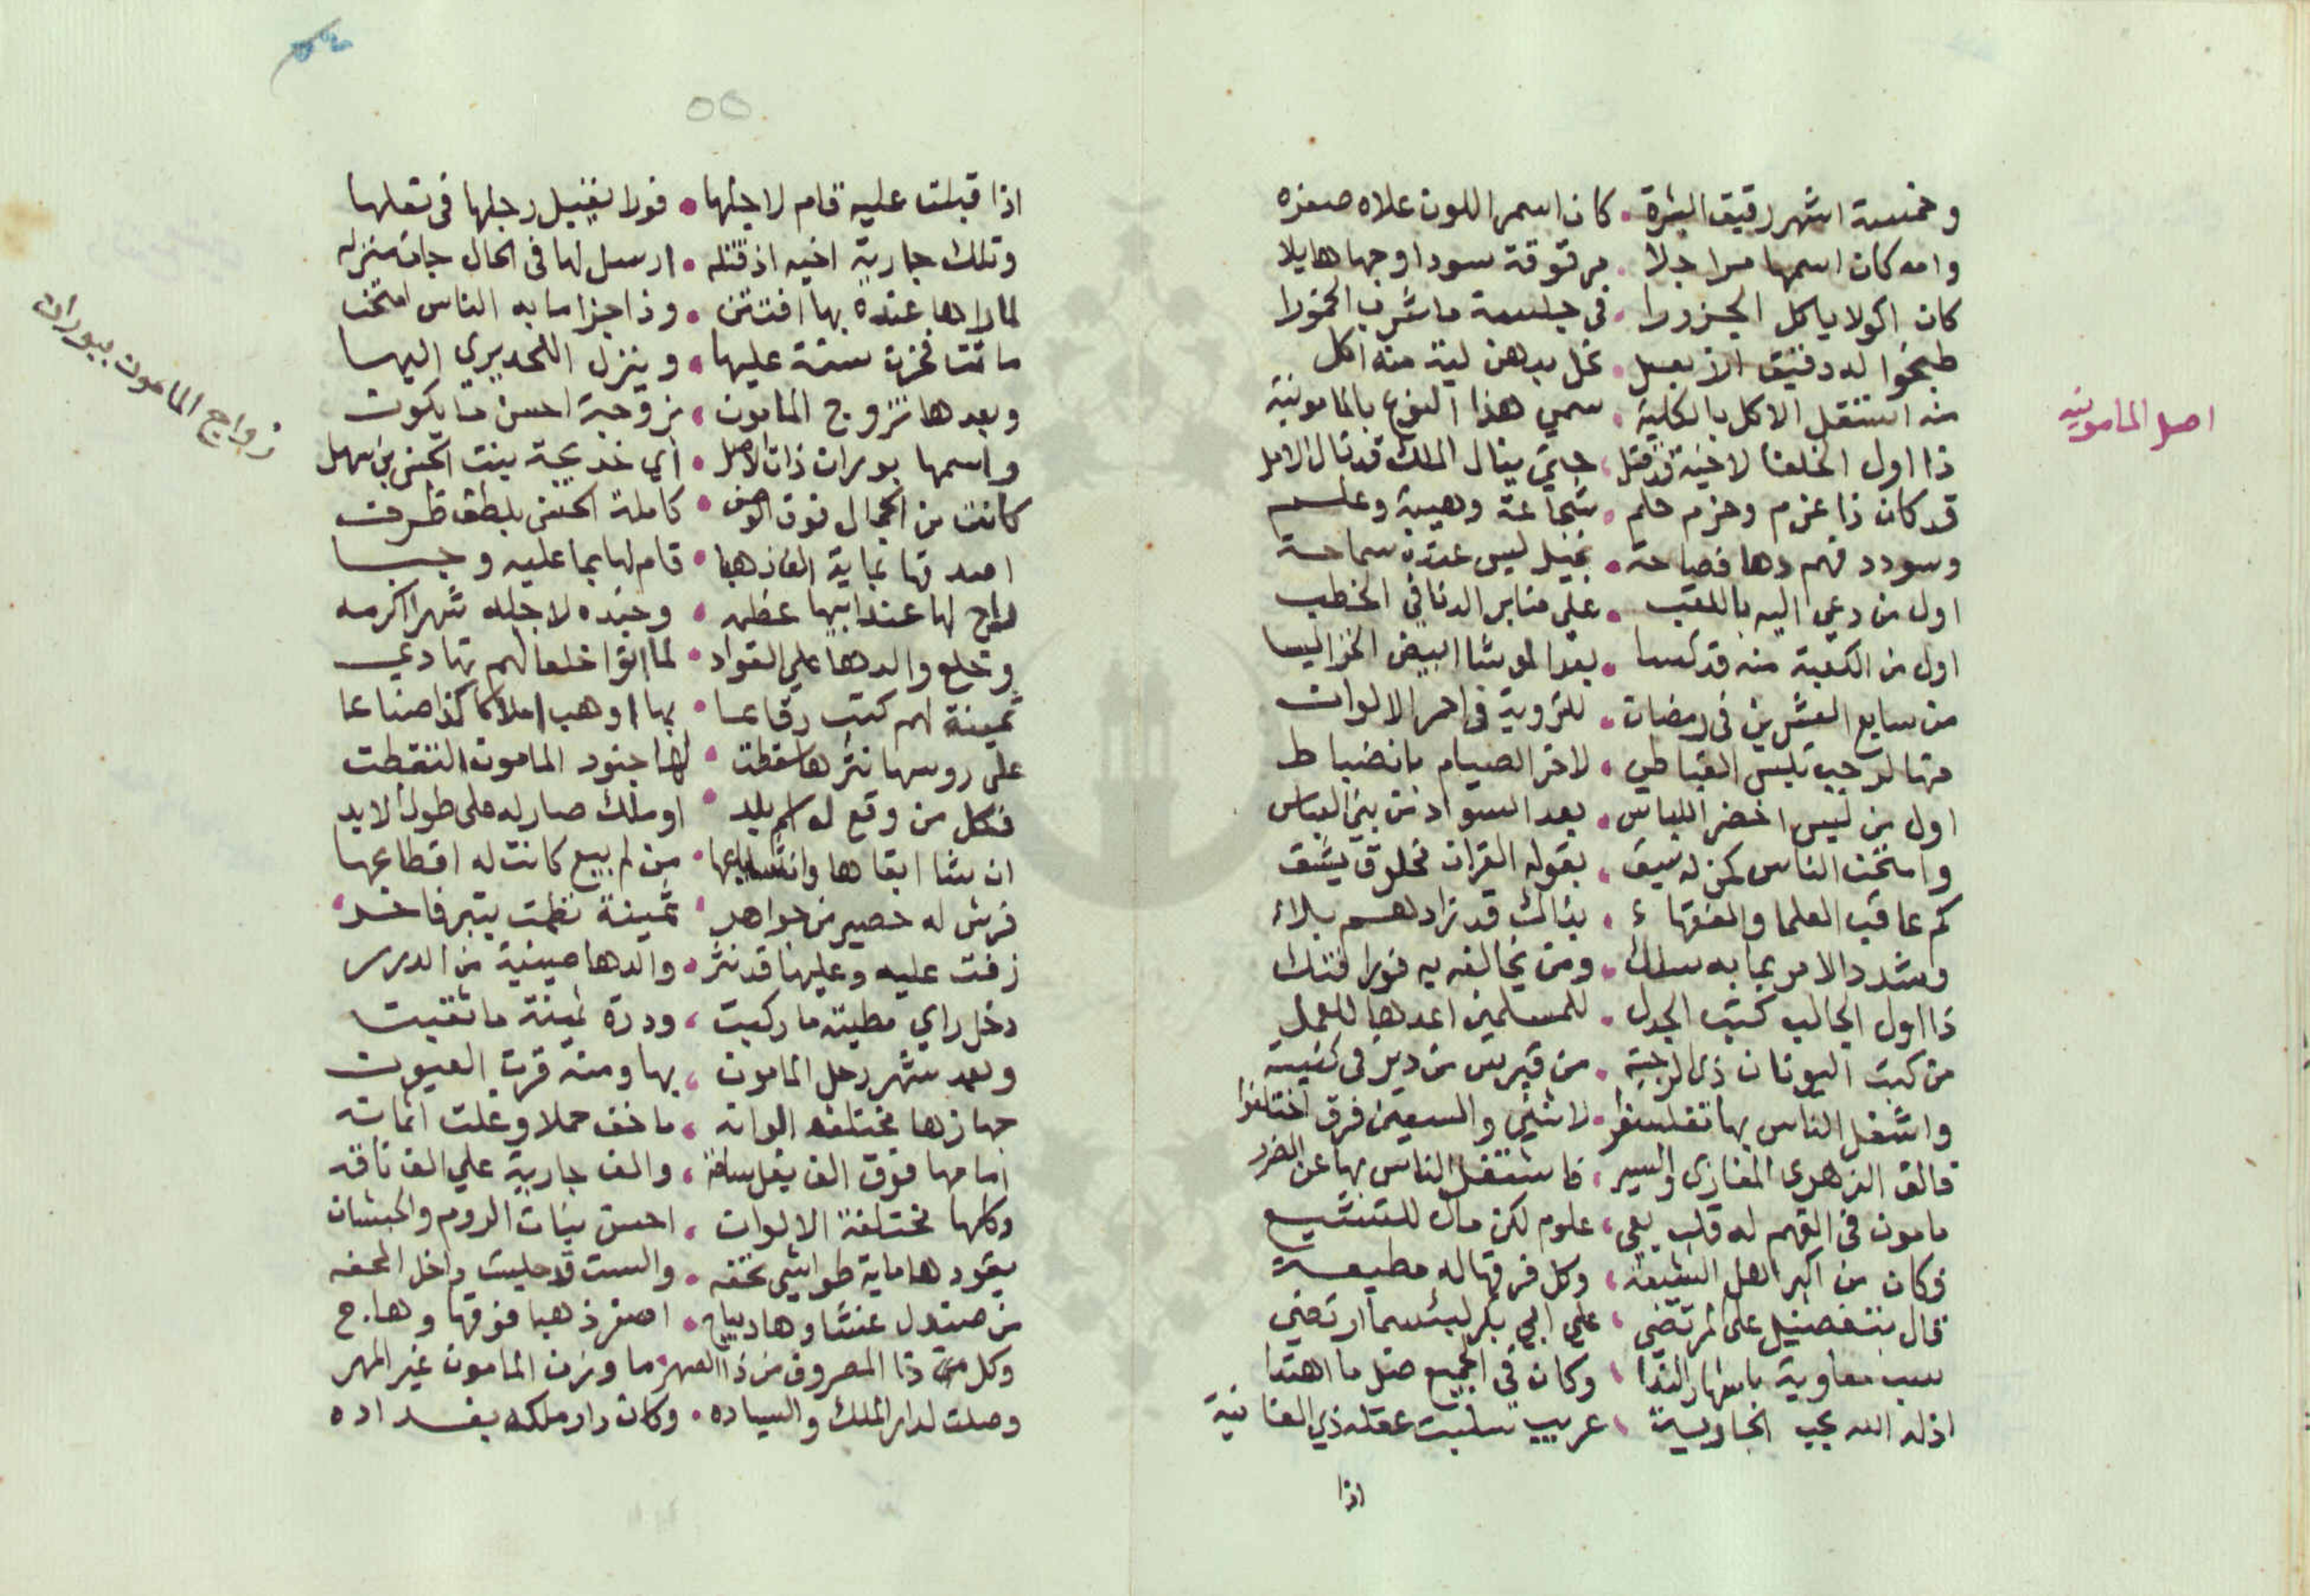 وخمسة اشهر رقيق البشرة . كان اسمر اللون علاه صفره
وامه كان اسمها مراجلا . برقوقة سودا وجهها هايلا
كان اكولا ياكل الجزورا . في جلسة ماشرب الخمورا
طبخوا له دقيق الارز بعسل . نخل بدهن لية منه اكل
منه استقل الاكل بالكلية . سمي هذا النوع بالمامونية
ذا اول الخلفا لاخيه قد قتل . حتي ينال الملك قد نال الامل
قد كان ذا عزم وحزم حلم . شجاعة وهيبة وعلم
وسودد فهم دها فصاحة . بخيل ليس عنده سماحة
اول من دعي اليه باللقب . علي منابر الدنا في الخطب
اول من الكعبة منه قد كسا . بعد الموشا ابيض الخز اليسا
من سابع العشرين في رمضان . للتروية في احمر الالوان
منها لرجب تلبس القباطي . لاخر الصيام بانضباط
اول من لبس اخضر اللباس . بعد السواد من بني العباس
وامتحن الناس لمن له سبق . بقوله القران مخلوق يشق
كم عاقب العلما والفقهاء . بذالك قد زادهم بلاء
وشدد الامر بما به سلك . ومن يخالفه به فورا فتك
ذا اول الجالب كتب الجدل . للمسلمين اعدها للعمل
من كتب اليونان ذي لوجية . من قبرس من دير في كنيسة
واشغل الناس بها تفلسفوا . لاثني والسبعين فرق اختلفوا
فالف الزهري المغازي والسير . فاشتغل الناس بها عن الضرر
مامون في الفهم له قلب يعي . علوم لكن مال للتشيع
فكان من اكبر اهل الشيعة . وكل فرقها له مطيعة
قال بتفضيل علي المرتضي . علي ابي بكر لبئسما ارتضي
سب معاوية باشهار الندا . وكان في الجميع ضل ما اهتدا
اذله الله بحب الجارية . عريب سلبت عقله ذي الغانية
اذا
اصل المامونيه
٥٥
اذا قبلت عليه قام لاجلها . فورا يقبيل رجلها في نعلها
وتلك جارية اخيه اذ قتله . ارسل لها في الحال جات منزله
لما راها عنده بها افتتن . وذا جزا ما به الناس امتحن
ماتت فحزن سنة عليها . وينزل اللحد يري اليها
وبعدها تزوج المامون . بزوجة احسن ما يكون
واسمها بوران ذات الاصل . اي خديجة بنت الحسن بن سهل
كانت من الجمال فوق الوصف . كاملة الحسن بلطف ظرف
امهرتها بماية الف ذهبا . قام لها بما عليه وجبا
راح لها عند ابيها عظمه . وجنده لاجله شهرا اكرمه
وخلع والدها علي القواد . لما اتوا خلعا لهم تهادي
ثمينة لهم كتب رقاعا . بها اوهب املاكا كذا ضياعا
علي روسها نثرها سقطت . لها جنود المامون التقطت
فكل من وقع له اسم بلد . او ملك صار له علي طول الابد
ان شا ابقاها وان شا باعها . من لم يبيع كانت له اقطاعها
فرش له حصير من جواهر . ثمينة نظمت بتبر فاخر
زفت عليه وعليها قد نثر . والدها صينية من الدرر
دخل راي مطيته ما ركبت . ودرة ثمينة ما ثقبت
وبعد شهر رحل المامون . بها ومنه قرت العيون
جهازها مختلفه الوانه . ما خف حملا وغلت اثمانه
امامها فوق الف بغل ساقة . والف جارية علي الف ناقه
وكلها مختلفة الالوان . احسن بنات الروم والحبشان
يقودها ماية طواشي تحفه . والست قد جليت داخل المحفه
من صندل غشاوها ديباج . اصفر ذهبا فوقها وهاج
وكل من ذا المصروف من ذا الصهر . ما وزن المامون غير المهر
وصلت لدار الملك والسياده . وكان دار ملكه بغداده
زواج المامون ببوران